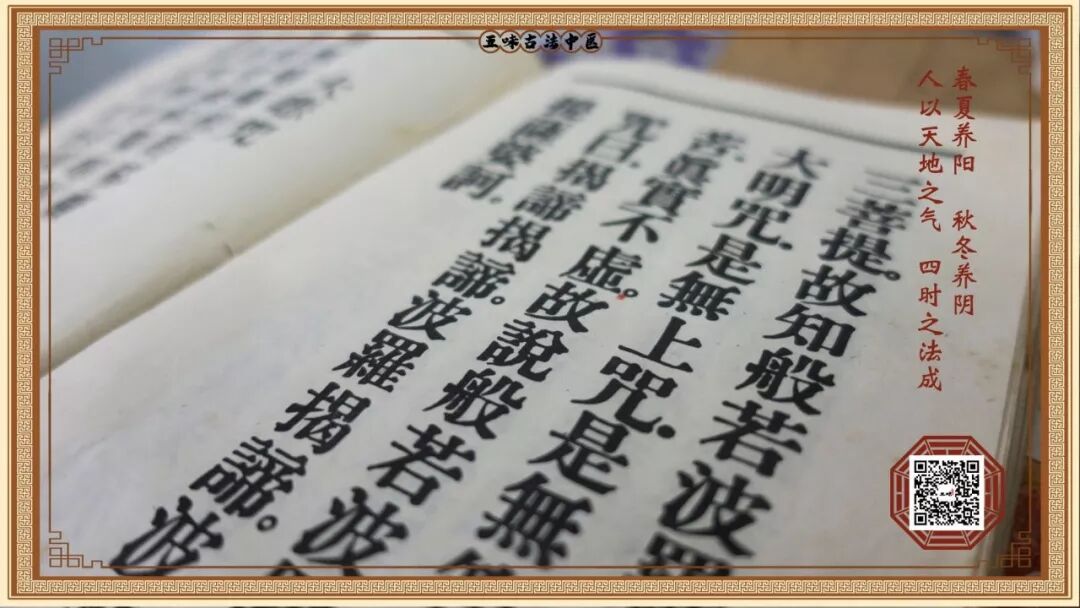 豆味古法中医
春夏养阳 秋冬养阴
人以天地之气 四时之法成
三菩提。故知般若波羅
大明咒。是無上咒。是無
苦。眞實不虛。故說般若波
咒曰。揭諦揭諦。波羅揭諦。波
提薩婆訶。